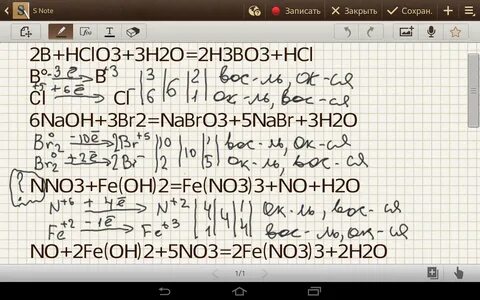 S Note
Записать
Закрыть
Сохран.
2B+HClO3+3H2O=2H3BO3+HCl
B⁰ -3ē → B⁺³ | 3 | 6 | 2 | вос-ль, ок-ся
Cl⁺⁵ +6ē → Cl⁻ | 6 | | 1 | ок-ль, вос-ся
6NaOH+3Br2=NaBrO3+5NaBr+3H2O
Br₂⁰ -10ē → 2Br⁺⁵ | 10 | 10 | 1 | вос-ль, ок-ся
Br₂⁰ +2ē → 2Br⁻ | 2 | | 5 | ок-ль, вос-ся
? NNO3+Fe(OH)2=Fe(NO3)3+NO+H2O
N⁺⁶ +4ē → N⁺² | 4 | 4 | 1 | ок-ль, вос-ся
Fe⁺² -1ē → Fe⁺³ | 1 | | 4 | вос-ль, ок-ся
NO+2Fe(OH)2+5NO3=2Fe(NO3)3+2H2O
1/1